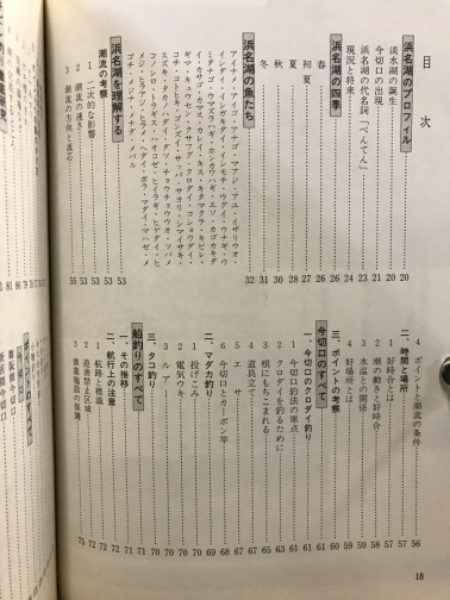 目次
浜名湖のプロフィル 20
淡水湖の誕生 20
今切口の出現 21
浜名湖の代名詞「べんてん」 23
現況と将来 24
浜名湖の四季 26
春 26
初夏 27
夏 28
秋 30
冬 31
浜名湖の魚たち 32
アイナメ・アイゴ・アナゴ・マアジ・アユ・イザリウオ・
イシダイ・イシガキダイ・イシモチ・ウグイ・ウナギ・ウ
ミタナゴ・ウマズラハギ・ホンカワハギ・エソ・カゴカキダ
イ・カサゴ・カマス・カレイ・キス・キタマクラ・キビレ・
ギマ・キュウセン・クサフグ・クロダイ・コショウダイ・
コチ・コトヒキ・ゴンズイ・サッパ・サヨリ・シマイサキ・
コノシロ・トラギス・ハオコゼ・ヒイラギ・ヒゲダイ・ヒ
スズキ・タカノハダイ・ダツ・チョウチョウウオ・ツバメ
メジ・ヒラアジ・ヒラメ・ヘダイ・ボラ・マダイ・マハゼ・メ
ゴチ・メジナ・メナダ・メバル
浜名湖を理解する 53
潮流の考察 53
1 二次的な影響 53
2 潮流の速さ 53
3 潮流の方向と流芯 55
4 ポイントと潮流の条件 56
二、時間と場所 57
1 好時合とは 57
2 潮の動きと好時合 57
3 水温との関係 58
4 好場所とは 59
三、ポイントの考察 60
今切口のすべて 61
一、今切口のクロダイ釣り 61
1 今切口釣法の原点 61
2 クロダイを釣るために 63
3 根がもちこまれる 65
4 道具立て 66
5 エサ 67
6 今切口とカーボン竿 68
二、マダカ釣り 69
1 投げこみ 69
2 電気ウキ 70
3 ルアー 70
三、タコ釣り 70
船釣りのすべて 71
一、その推移 71
二、航行上の注意 72
1 航路と標識 72
2 遊漁禁止区域 72
3 漁業施設の保護 75
18